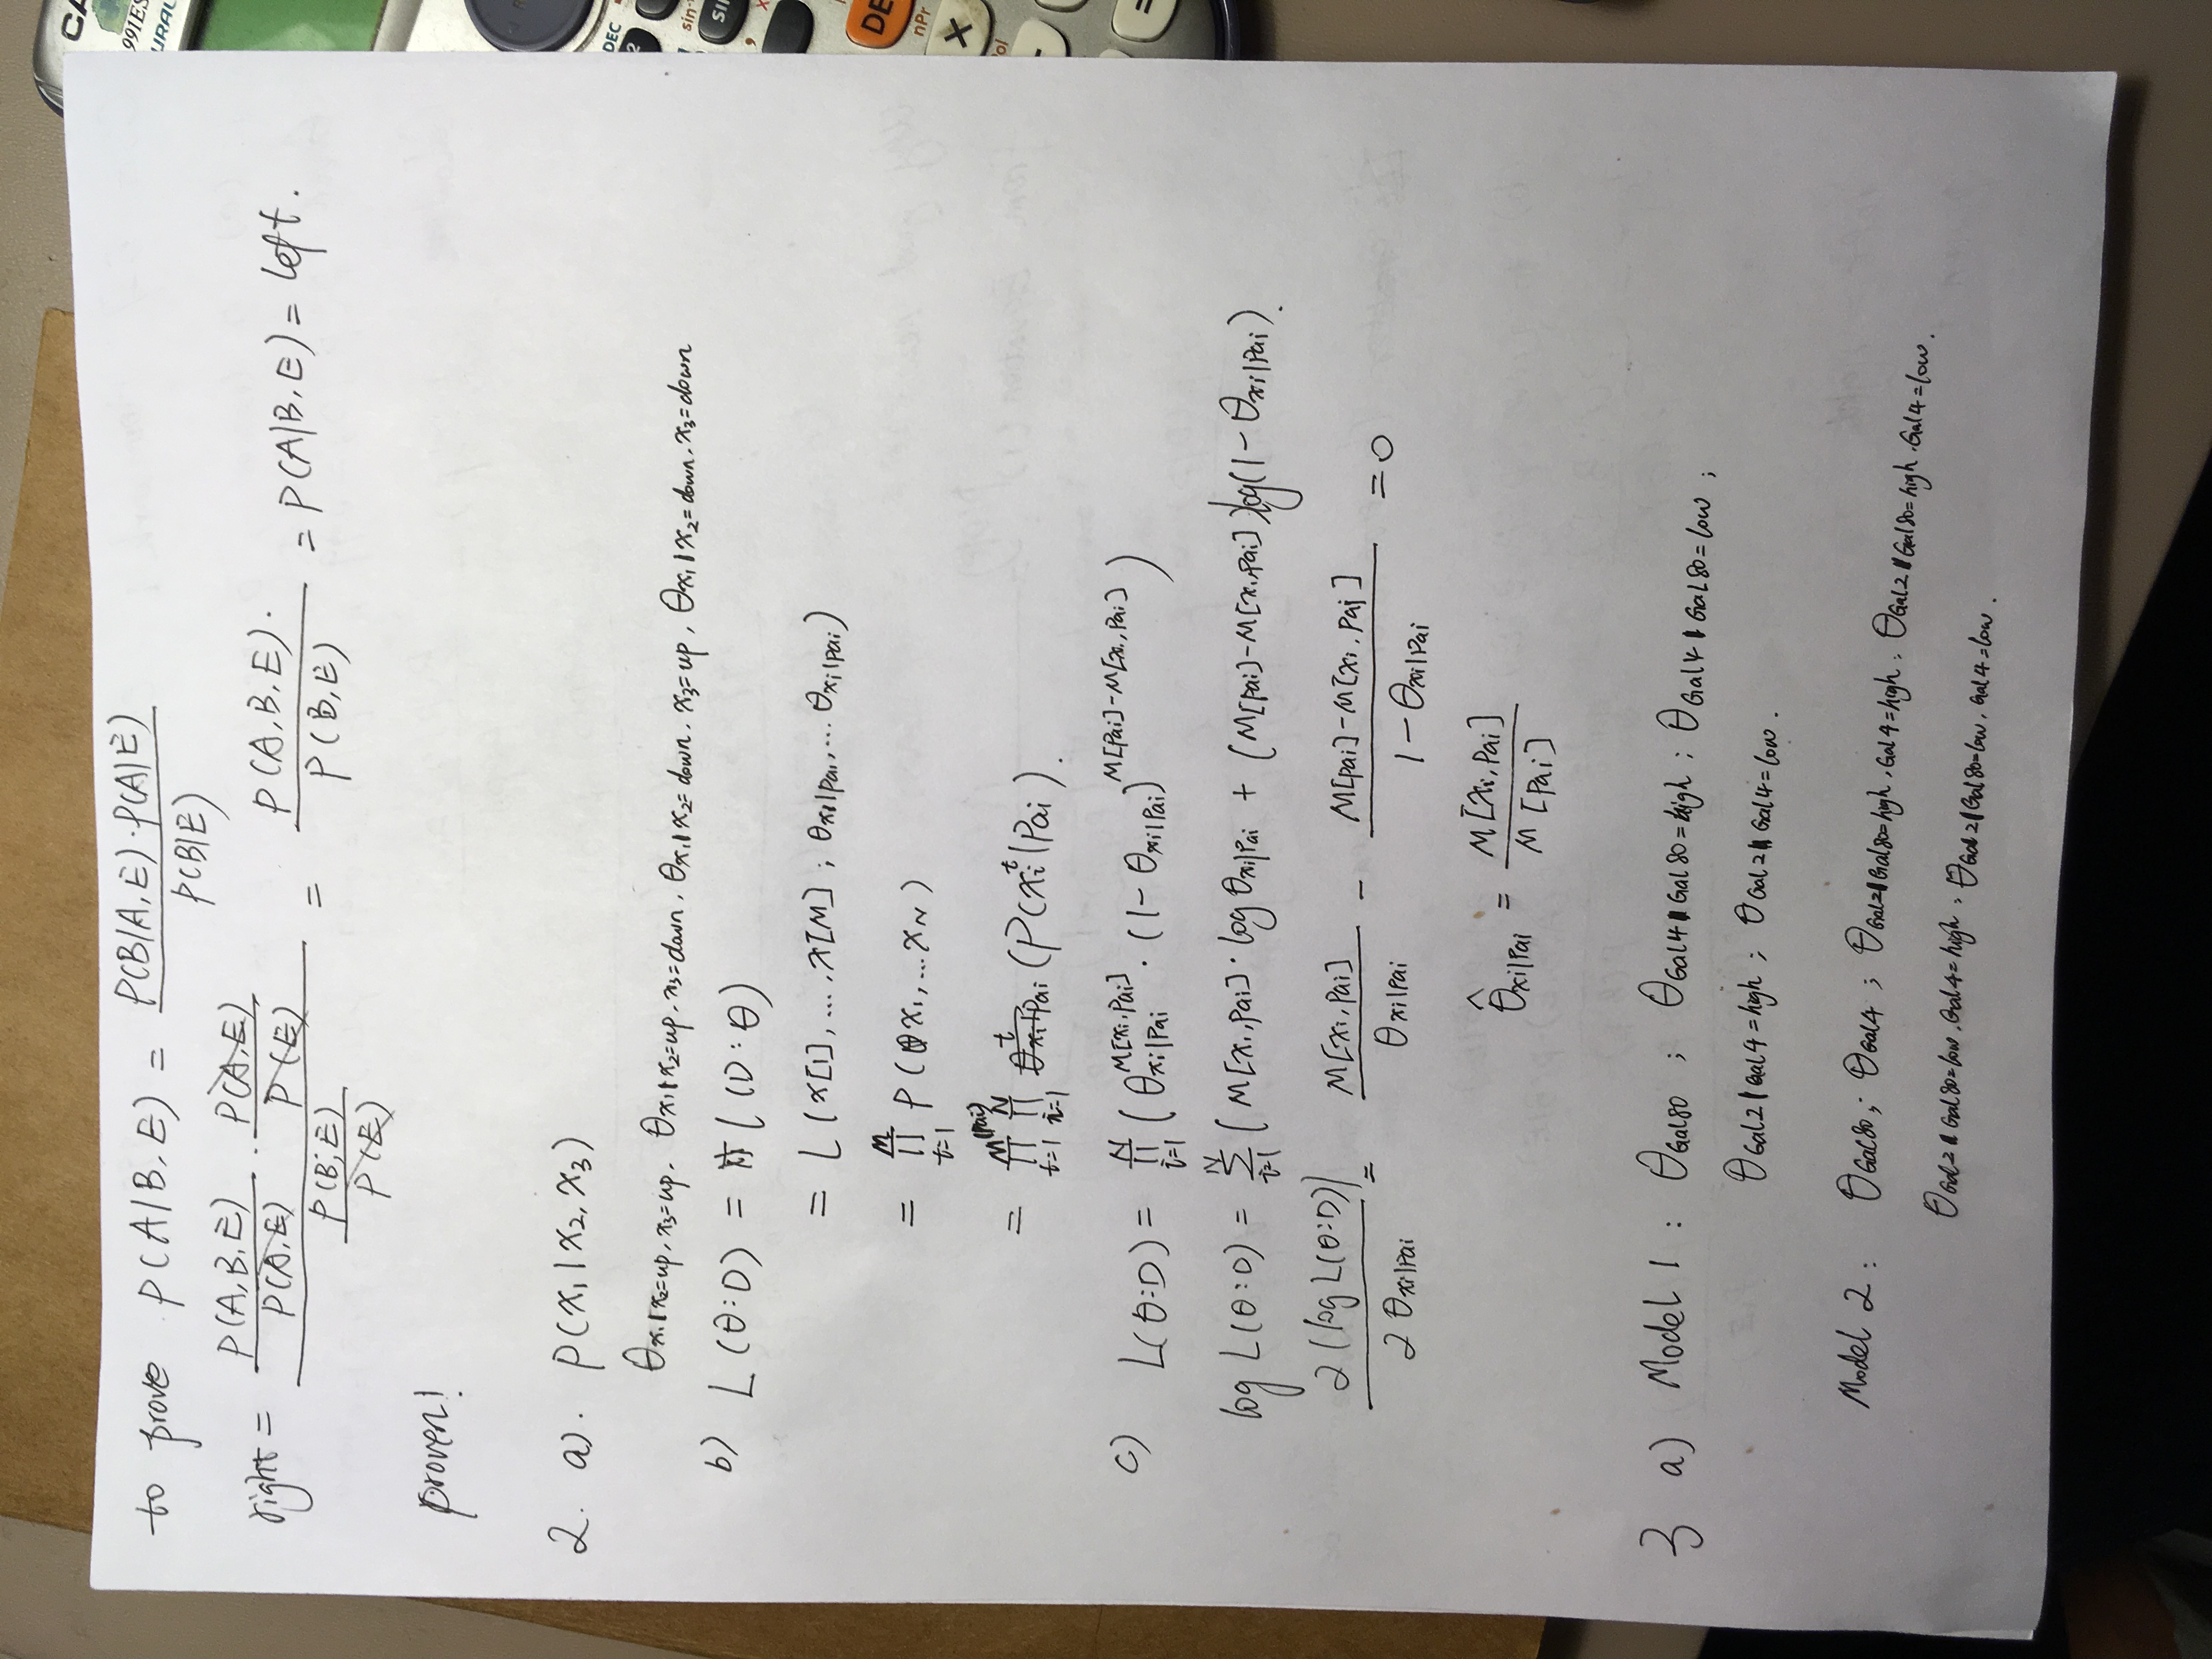 to prove P(A|B,E) = P(B|A,E)·P(A|E) / P(B|E)
right = P(A,B,E) / P(A,E) · P(A,E) / P(E) / P(B,E) / P(E) = P(A,B,E)· / P(B,E) = P(A|B,E) = left.
proven!
2. a). P(x₁|x₂,x₃)
θx₁|x₂=up,x₃=up. θx₁|x₂=up,x₃=down, θx₁|x₂=down,x₃=up, θx₁|x₂=down,x₃=down
b) L(θ:D) = L(D:θ)
= L(x[1],...,x[M]; θxi|Pai,... θxi|Pai)
= ∏ᴹt=1 P(x₁,...xN)
= ∏t=1 M[Pai] ∏ᴺi=1 (P(xiᵗ|Pai).
c) L(θ:D) = ∏ᴺi=1 (θxi|Pai^M[xi,Pai] · (1-θxi|Pai)^M[Pai]-M[xi,Pai])
log L(θ:D) = ∑ᴺi=1 (M[xi,Pai]·log θxi|Pai + (M[Pai]-M[xi,Pai])log(1-θxi|Pai).
∂(log L(θ:D)) / ∂θxi|Pai = M[xi,Pai] / θxi|Pai - M[Pai]-M[xi,Pai] / 1-θxi|Pai = 0
θ̂xi|Pai = M[xi,Pai] / M[Pai]
3 a) Model 1: θGal80; θGal4|Gal80=high; θGal4|Gal80=low;
θGal2|Gal4=high; θGal2|Gal4=low.
Model 2: θGal80; θGal4; θGal2|Gal80=high,Gal4=high; θGal2|Gal80=high,Gal4=low.
θGal2|Gal80=low,Gal4=high; θGal2|Gal80=low,Gal4=low.
CA
991ES
URAL
DEC
2
sin⁻
SI
DE
nPr
×
=